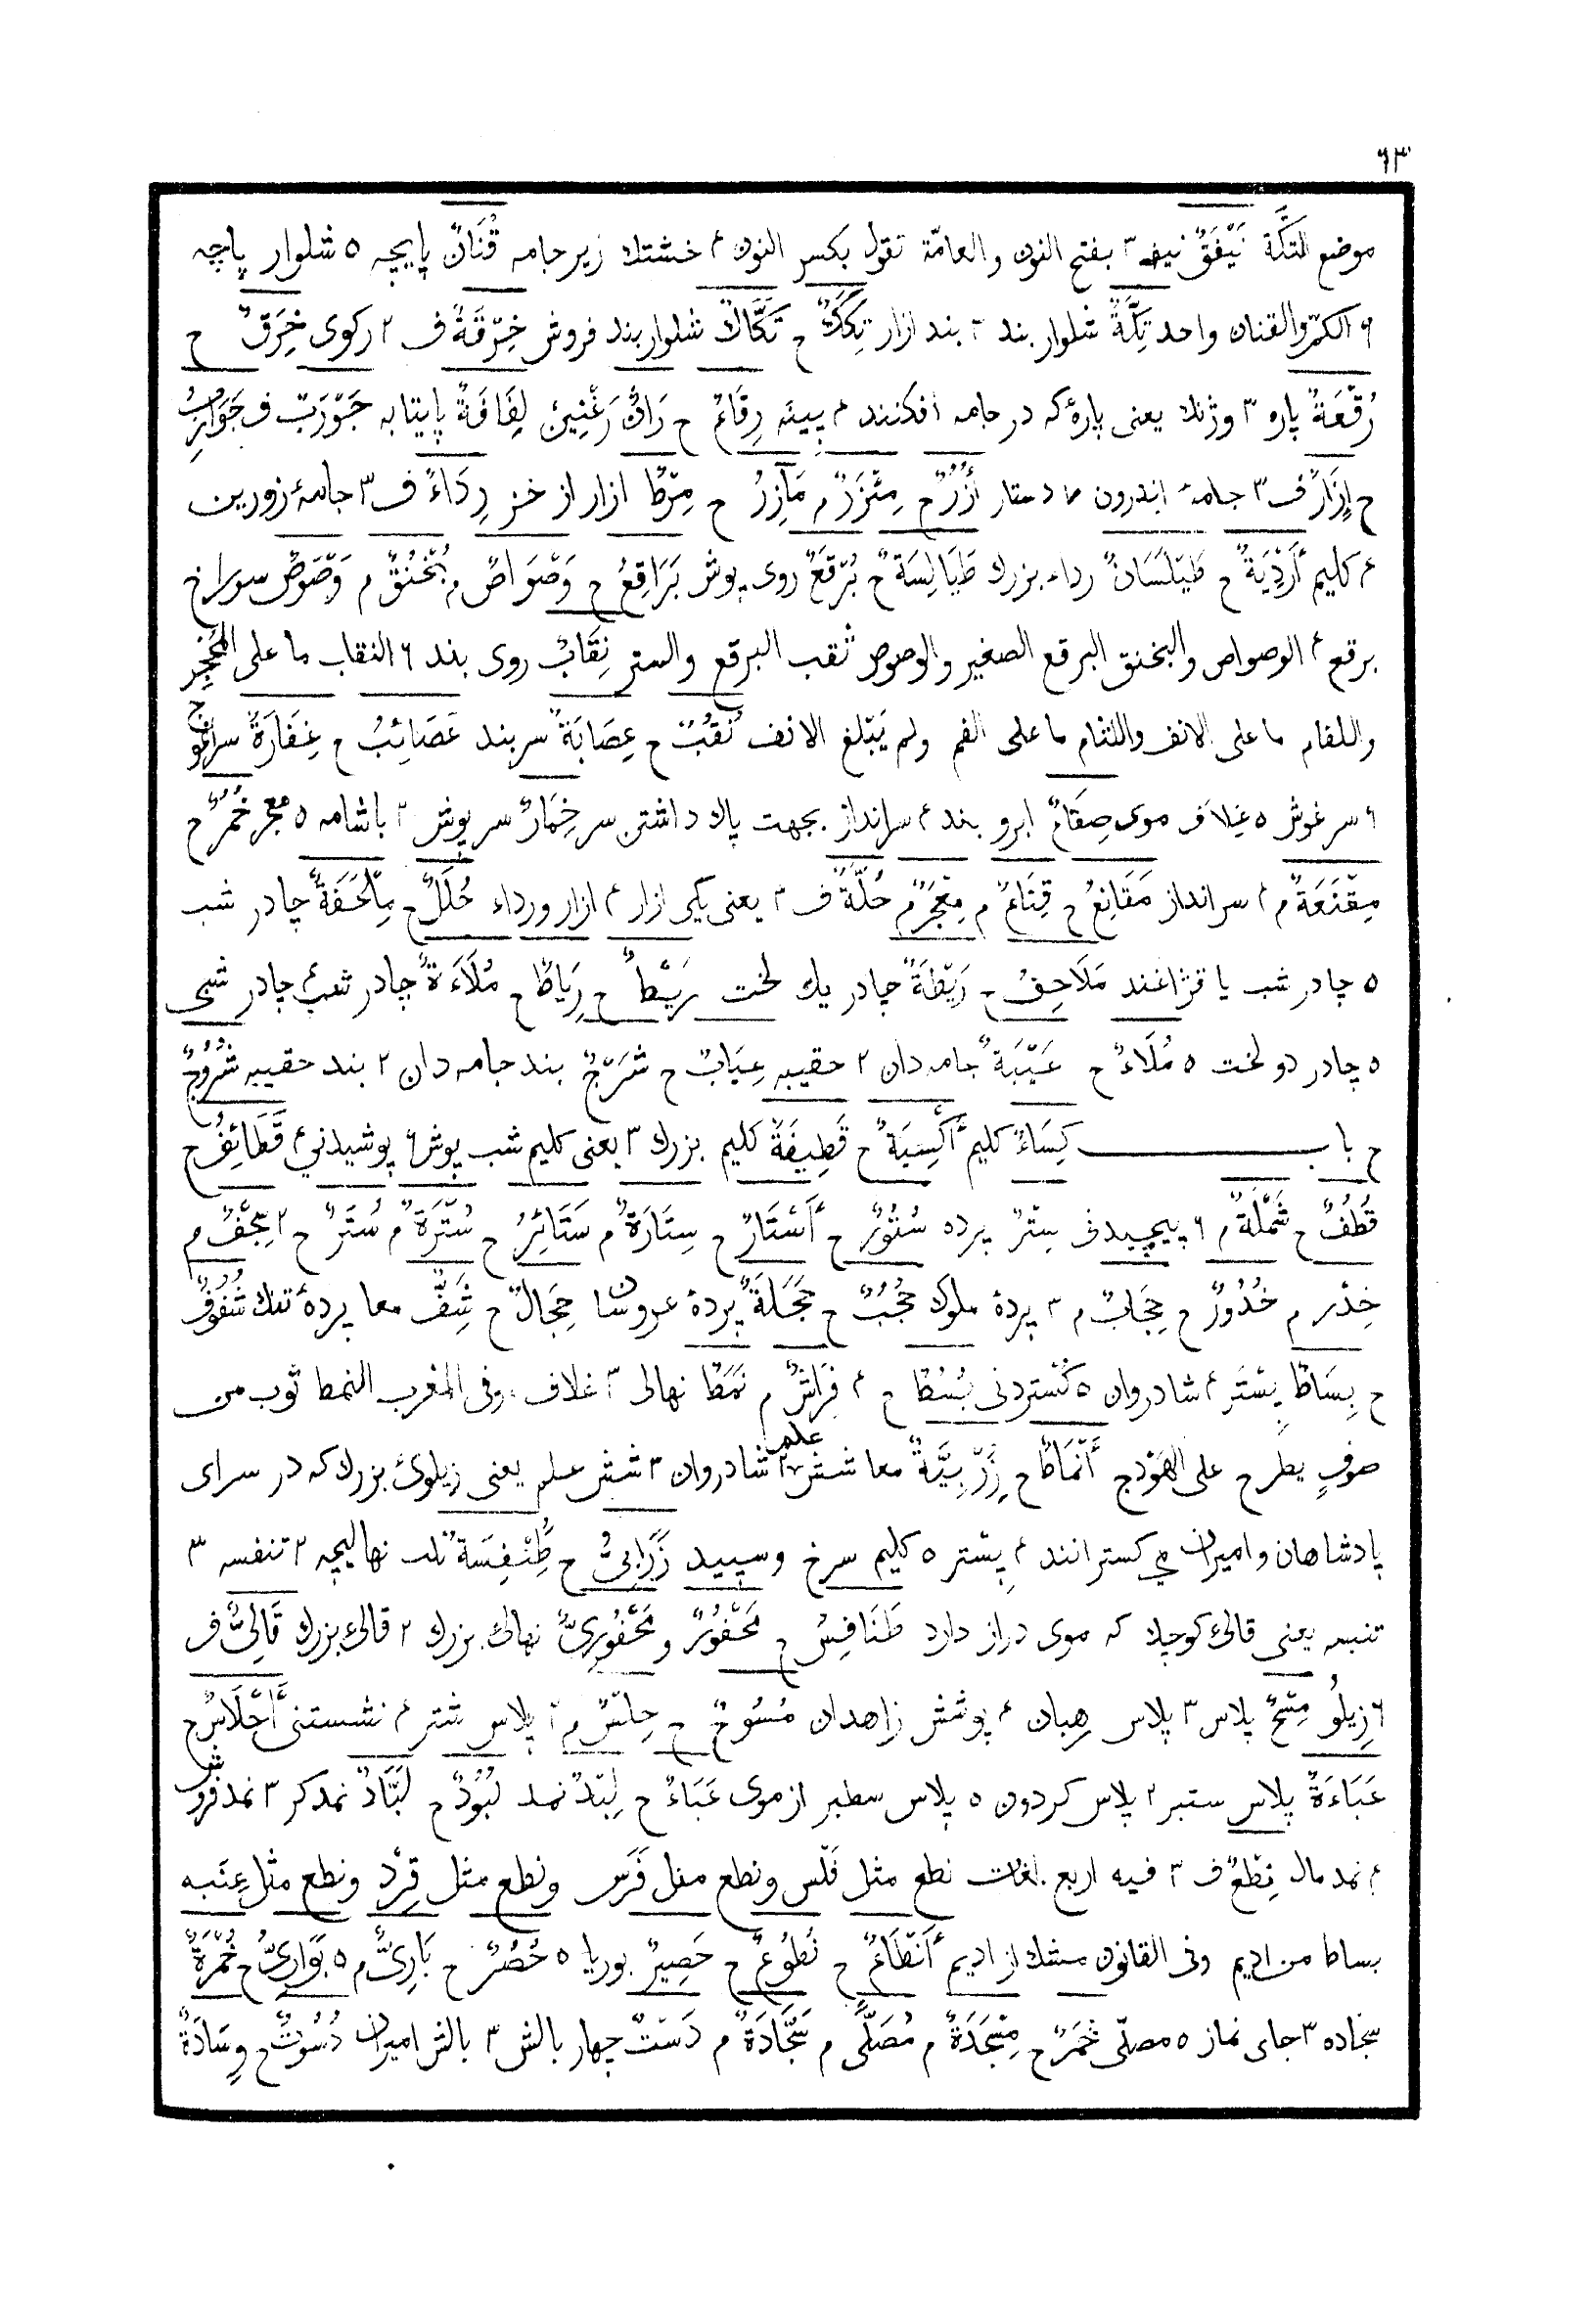 ٦٣
موضع التكّة نَيْفَقٌ نيفه ٣ بفتح النون والعامّة تقول بكسر النون ۴ خشتك زير جامه قُنَانٌ پايچه ٥ شلوار پاچه
٦ الكمّ والقنان واحد تِكَّةٌ شلوار بند ٢ بند ازار تِكَكٌ ج تَكَّاكٌ شلوار بند فروش خِرْقَةٌ ف ٢ ركوى خِرَقٌ ج
رُقْعَةٌ پاره ٣ وژنك يعنى پارهٔ كه در جامه افكنند ۴ پينه رِقَاعٌ ج رَانٌ رَغْنِينٌ لِفَافَةٌ پايتابه جَوْرَبٌ ف جَوَارِبُ
ج إِزَارٌ ف ٣ جامهٔ اندرون ٧ دستار أُزُرٌ ج مِئْزَرٌ م مَآزِرُ ج مِرْطٌ ازار از خز رِدَاءٌ ف ٣ جامهٔ زورين
۴ كليم أَرْدِيَةٌ ج طَيْلَسَانٌ رداء بزرك طَيَالِسَةٌ ج بُرْقَعٌ روى پوش بَرَاقِعُ ج وَصْوَاصٌ م بُخْنُقٌ م وَصْوَصٌ سوراخ
برقع ۴ الوصواص والبخنق البرقع الصغير والوصوص ثقب البرقع والستر نِقَابٌ روى بند ٦ النقاب ما على المَنْخِرِ
واللفام ما على الانف واللثام ما على الفم ولم يَبْلغ الانف نُقُبٌ ج عِصَابَةٌ سربند عَصَائِبُ ج غِفَارَةٌ سرآغوج
٦ سرغوش ٥ غِلاف موى صِقَاعٌ ابرو بند ۴ سرانداز بجهت پاك داشتن سر خِمَارٌ سر پوش ٢ باشامه ٥ معجر خُمُرٌ ج
مِقْنَعَةٌ م ۴ سرانداز مَقَانِعُ ج قِنَاعٌ م مِعْجَرٌ م حُلَّةٌ ف ٣ يعنى يكى ازار ۴ ازار ورداء حُلَلٌ ج مِلْحَفَةٌ چادر شب
٥ چادر شب يا قژاغند مَلَاحِفُ ج رَيْطَةٌ چادر يك لخت رَيْطٌ ج رِيَاطٌ ج مُلَاءَةٌ چادر شب ۴ چادر شبى
٥ چادر دو لخت ٥ مُلَاءٌ ج عَيْبَةٌ جامه دان ٢ حقيبه عِيَابٌ ج شَرَجٌ بند جامه دان ٢ بند حقيبه شُرُوجٌ
ج باب كِسَاءٌ كليم أَكْسِيَةٌ ج قَطِيفَةٌ كليم بزرك ٣ يعنى كليم شب پوش ٦ پوشيدنى ۴ قَطَائِفُ ج
قُطُفٌ ج شَمْلَةٌ م ٦ پيچيدنى سِتْرٌ پرده سُتُورٌ ج أَسْتَارٌ ج سِتَارَةٌ م سَتَائِرُ ج سُتْرَةٌ م سُتَرٌ ج ٢ سِجْفٌ م
خِدْر م خُدُورٌ ج حِجَابٌ م ٣ پردهٔ ملوك حُجُبٌ ج حَجَلَةٌ پردهٔ عروسان حِجَالٌ ج شِفٌّ معا پردهٔ تنك شُفُوفٌ
ج بِسَاطٌ بِسْتَر ۴ شادروان ٥ كُسْتردنى بُسُطٌ ج ۴ فِرَاشٌ م نَمَطٌ نهالى ٣ غلاف وفى المغرب النمط ثوب من
صوفٍ يطرح على الهَوْدج أَنْمَاطٌ ج زَرْبِيَّةٌ معا شش علم ٢ شادروان ٣ شش علم يعنى زيلوئ بزرك كه در سراى
پادشاهان واميران مى كسترانند ۴ بِستر ٥ كليم سرخ وسپيد زَرَابِىُّ ج طِنْفِسَةٌ ثلث نهاليچه ٢ تنفسه ٣
تنبسه يعنى قالئ كوچك كه موى دراز دارد طَنَافِسُ ج مَحْفُورٌ ومَحْفُورِىٌّ نهالئ بزرك ٢ قالئ بزرك قَالِىٌّ ف
٦ زِيلُو مِسْحٌ پلاس ٣ پلاس رهبان ۴ پوشش زاهدان مُسُوحٌ ج حِلْسٌ م ٢ پلاس شتر ۴ نشستنى أَحْلَاسٌ ج
عَبَاءَةٌ پلاس ستبر ٢ پلاس كردون ٥ پلاس سطبر از موى عَبَاءٌ ج لِبْدٌ نمد لُبُودٌ ج لَبَّادٌ نمدكر ٣ نمد فروش
۴ نمد مال نِطْعٌ ف ٣ فيه اربع لغات نطع مثل فَلْس ونطع مثل فَرَس ونطع مثل قِرْد ونطع مثل عِنَبه
بساط من اديم وفى القانون مشك از اديم أَنْطَاعٌ ج نُطُوعٌ ج حَصِيرٌ بوريا ٥ حُصُرٌ ج بَارِىٌّ م ٥ بَوَارِىُّ ج خُمْرَةٌ
سجاده ٣ جاى نماز ٥ مصلّى خُمَرٌ ج مِسْجَدَةٌ م مُصَلًّى م سَجَّادَةٌ م دَسْتٌ چهار بالش ٣ بالش اميران دُسُوتٌ ج وِسَادَةٌ